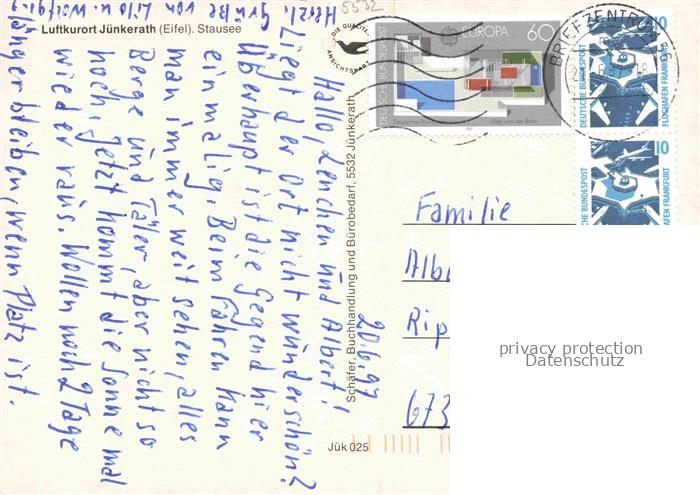 Luftkurort Jünkerath (Eifel). Stausee
20.6.97
Hallo, Lenchen und Albert!
Liegt der Ort nicht wunderschön?
Überhaupt ist die Gegend hier
einmalig. Beim Fahren kann
man immer weit sehen, alles
Berge und Täler, aber nicht so
hoch, jetzt kommt die Sonne mal
wieder raus. Wollen noch 2 Tage
länger bleiben, wenn Platz ist.
Herzl. Grüße von Lilo u. Wolfg
5532
DIE QUALITÄTS
ANSICHTSKART
Schäfer, Buchhandlung und Bürobedarf, 5532 Jünkerath
Jük 025
DEUTSCHE BUNDESPOST
EUROPA
60
BRIEFZENTRUM
DEUTSCHE BUNDESPOST
FLUGHAFEN FRANKFURT
10
DEUTSCHE BUNDESPOST
FLUGHAFEN FRANKFURT
10
Familie
Alb
Rip
673
privacy protection
Datenschutz